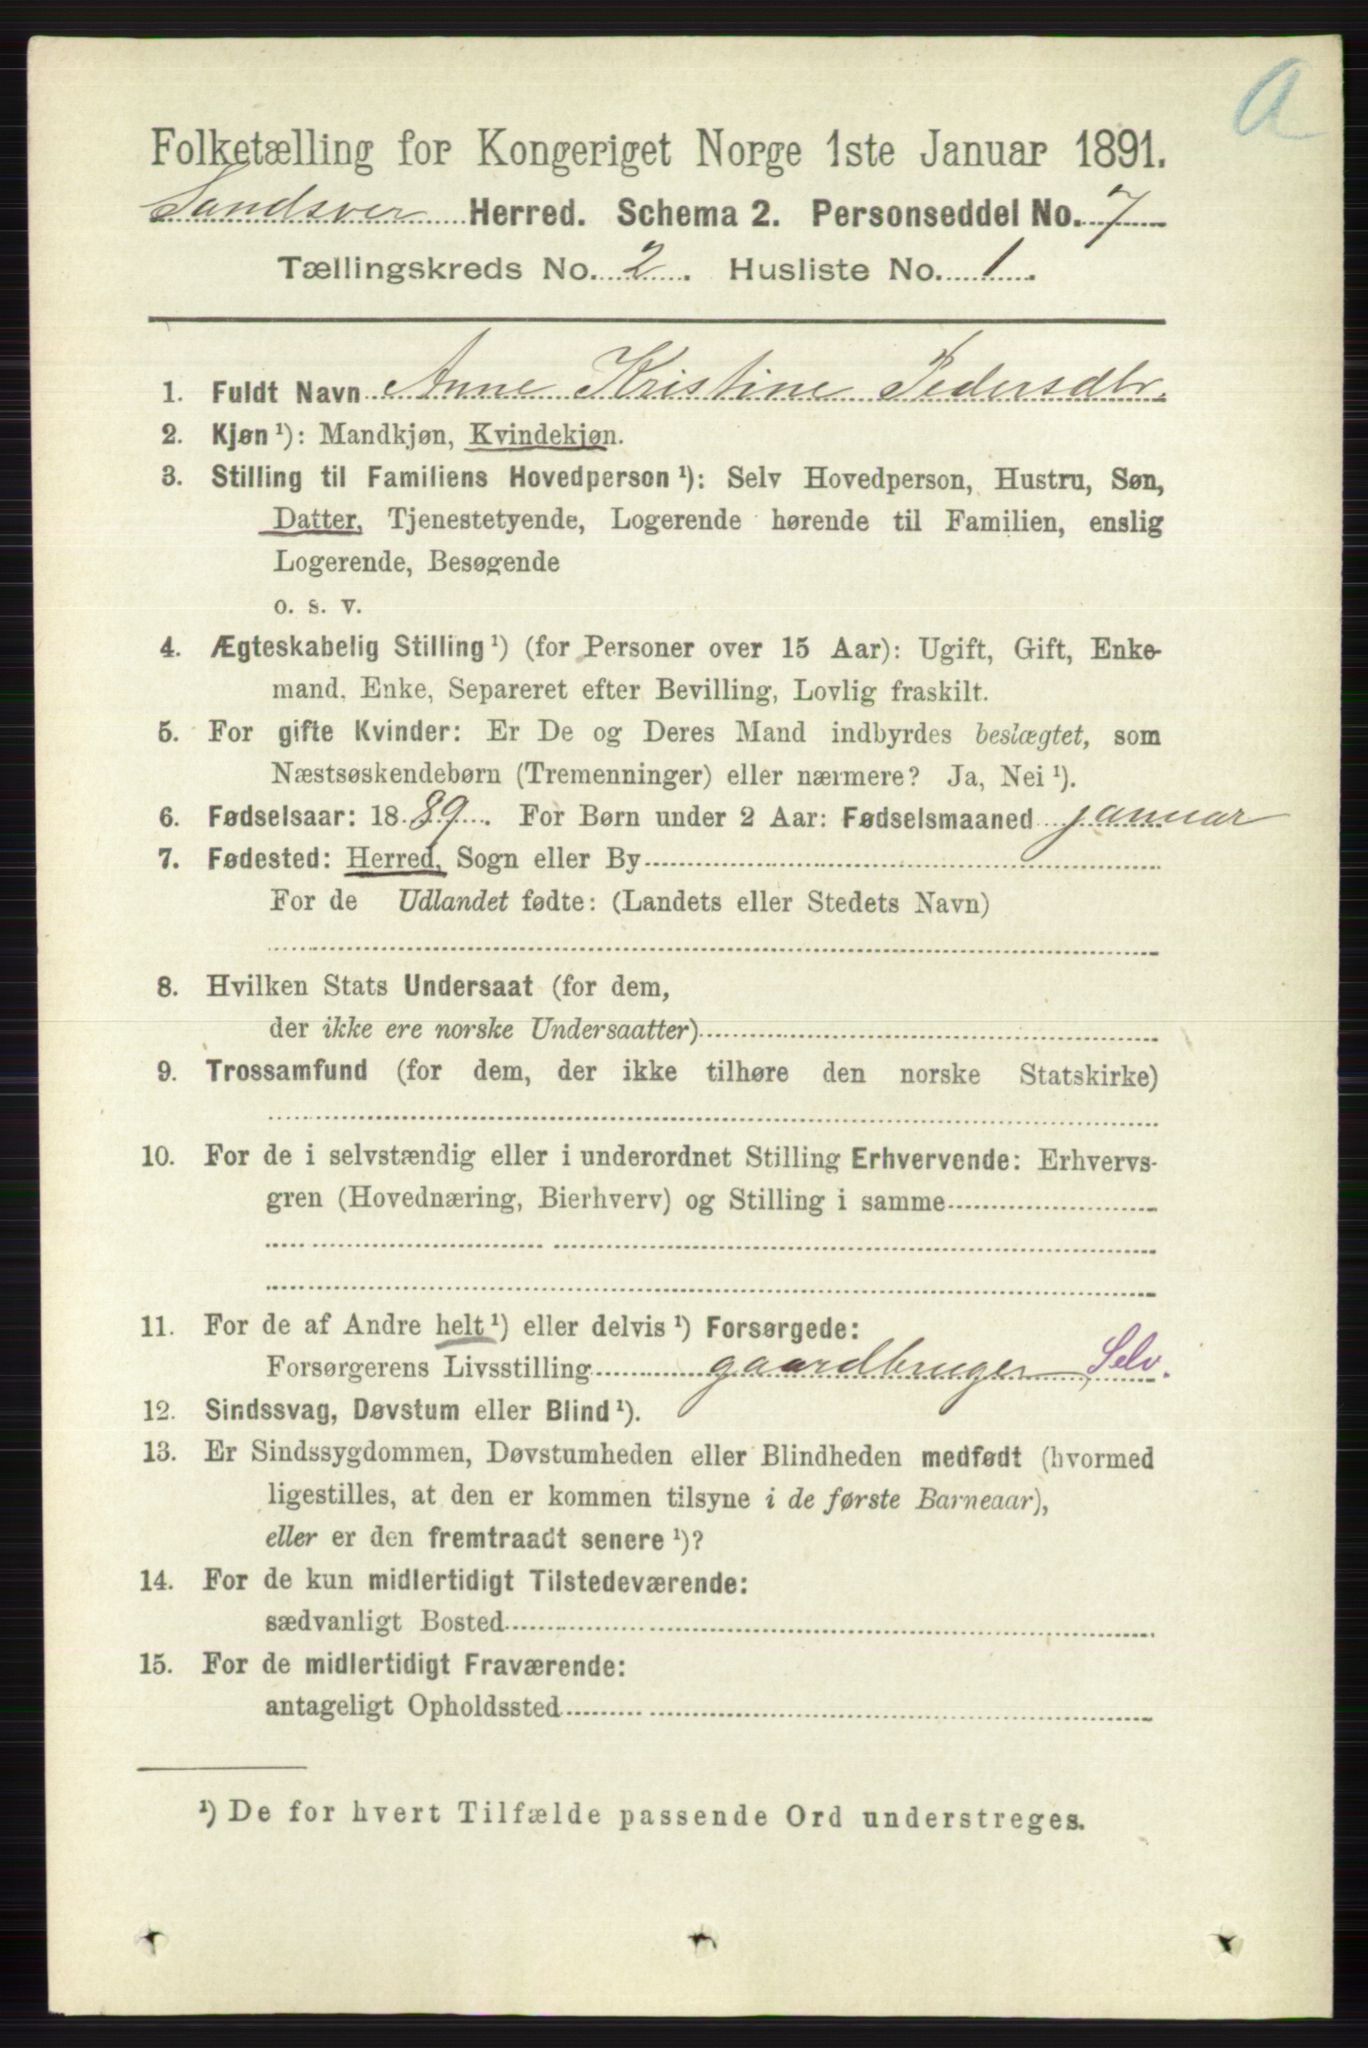 a
Folketælling for Kongeriget Norge 1ste Januar 1891.
Sandsver Herred. Schema 2. Personseddel No. 7
Tællingskreds No. 2. Husliste No. 1.
1. Fuldt Navn Anne Kristine Pedersdtr.
2. Kjøn ¹): Mandkjøn, Kvindekjøn.
3. Stilling til Familiens Hovedperson ¹): Selv Hovedperson, Hustru, Søn,
Datter, Tjenestetyende, Logerende hørende til Familien, enslig
Logerende, Besøgende
o. s. v.
4. Ægteskabelig Stilling ¹) (for Personer over 15 Aar): Ugift, Gift, Enke-
mand, Enke, Separeret efter Bevilling, Lovlig fraskilt.
5. For gifte Kvinder: Er De og Deres Mand indbyrdes beslægtet, som
Næstsøskendebørn (Tremenninger) eller nærmere? Ja, Nei ¹).
6. Fødselsaar: 1889. For Børn under 2 Aar: Fødselsmaaned januar
7. Fødested: Herred, Sogn eller By
For de Udlandet fødte: (Landets eller Stedets Navn)
8. Hvilken Stats Undersaat (for dem,
der ikke ere norske Undersaatter)
9. Trossamfund (for dem, der ikke tilhøre den norske Statskirke)
10. For de i selvstændig eller i underordnet Stilling Erhvervende: Erhvervs-
gren (Hovednæring, Bierhverv) og Stilling i samme
11. For de af Andre helt ¹) eller delvis ¹) Forsørgede:
Forsørgerens Livsstilling gaardbruger Selv.
12. Sindssvag, Døvstum eller Blind ¹).
13. Er Sindssygdommen, Døvstumheden eller Blindheden medfødt (hvormed
ligestilles, at den er kommen tilsyne i de første Barneaar),
eller er den fremtraadt senere ¹)?
14. For de kun midlertidigt Tilstedeværende:
sædvanligt Bosted
15. For de midlertidigt Fraværende:
antageligt Opholdssted
¹) De for hvert Tilfælde passende Ord understreges.